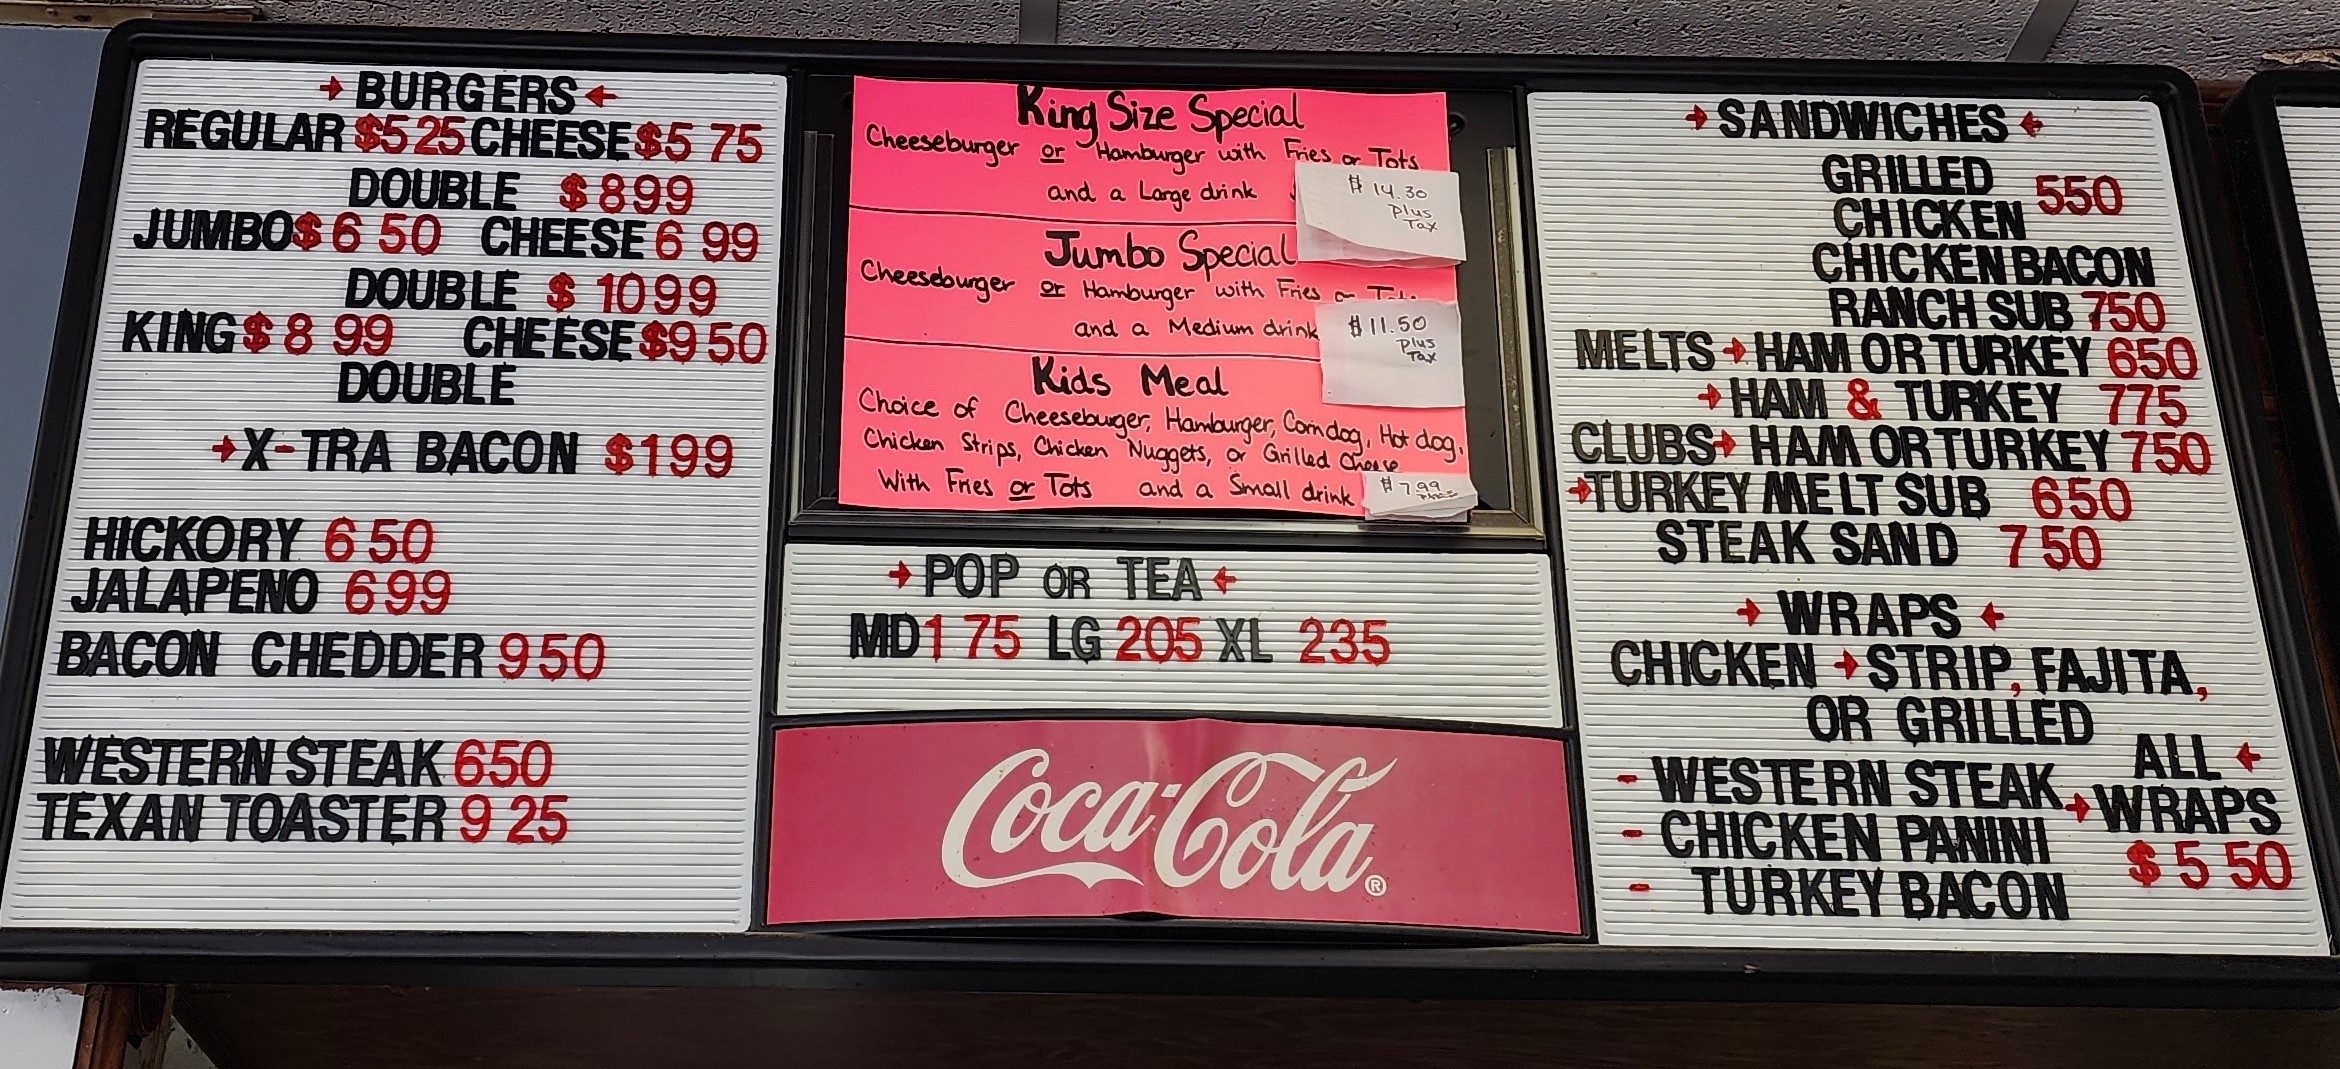 BURGERS
REGULAR $5 25 CHEESE $5 75
DOUBLE $8 99
JUMBO $6 50 CHEESE 6 99
DOUBLE $ 10 99
KING $8 99 CHEESE $9 50
DOUBLE
X-TRA BACON $1 99
HICKORY 6 50
JALAPENO 6 99
BACON CHEDDER 9 50
WESTERN STEAK 6 50
TEXAN TOASTER 9 25
King Size Special
Cheeseburger or Hamburger with Fries or Tots
and a Large drink
$ 14.30
plus
Tax
Jumbo Special
Cheeseburger or Hamburger with Fries or
and a Medium drink
$ 11.50
plus
Tax
Kids Meal
Choice of Cheeseburger, Hamburger, Corndog, Hot dog,
Chicken Strips, Chicken Nuggets, or Grilled Cheese
With Fries or Tots and a Small drink
$ 7.99
POP OR TEA
MD 1 75 LG 205 XL 235
Coca-Cola®
SANDWICHES
GRILLED
CHICKEN 550
CHICKEN BACON
RANCH SUB 750
MELTS HAM OR TURKEY 650
HAM & TURKEY 775
CLUBS HAM OR TURKEY 750
TURKEY MELT SUB 650
STEAK SAND 7 50
WRAPS
CHICKEN STRIP, FAJITA,
OR GRILLED
- WESTERN STEAK
- CHICKEN PANINI
- TURKEY BACON
ALL
WRAPS
$ 5 50